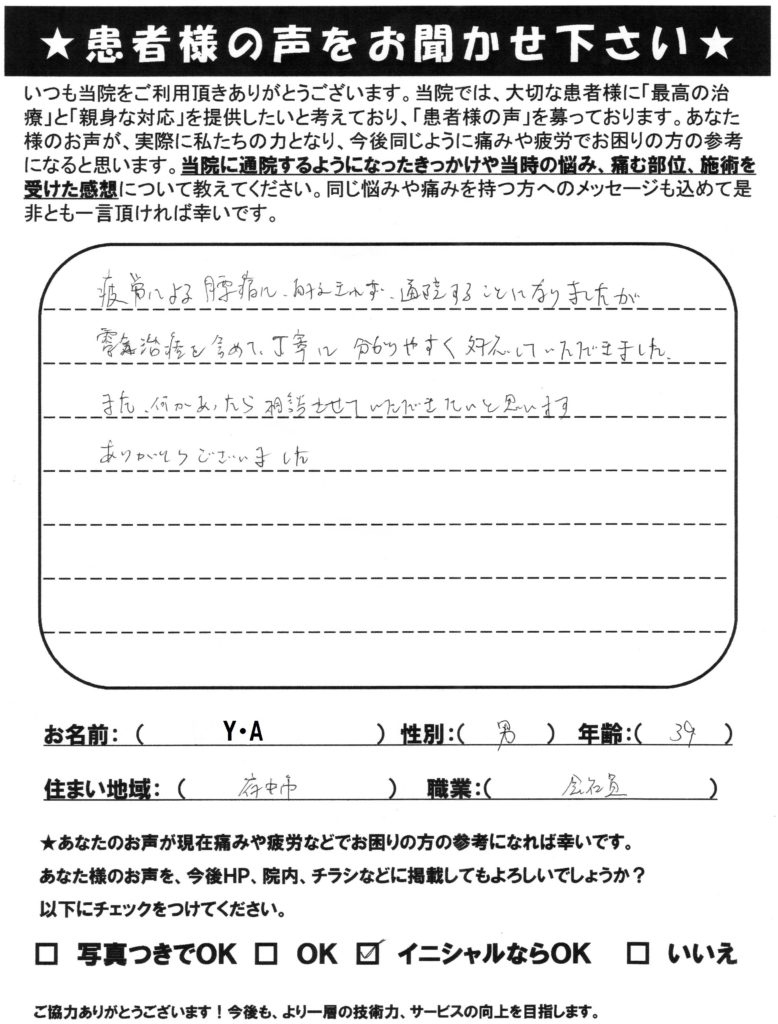 ★患者様の声をお聞かせ下さい★
いつも当院をご利用頂きありがとうございます。当院では、大切な患者様に「最高の治
療」と「親身な対応」を提供したいと考えており、「患者様の声」を募っております。あなた
様のお声が、実際に私たちの力となり、今後同じように痛みや疲労でお困りの方の参考
になると思います。当院に通院するようになったきっかけや当時の悩み、痛む部位、施術を
受けた感想について教えてください。同じ悩みや痛みを持つ方へのメッセージも込めて是
非とも一言頂ければ幸いです。
疲労による腰痛に、耐えきれず、通院することになりましたが
電気治療を含めて、丁寧に分かりやすく対応していただきました。
また、何かあったら相談させていただきたいと思います
ありがとうございました
お名前：（ Y・A ） 性別：（ 男 ） 年齢：（ 39 ）
住まい地域：（ 府中市 ） 職業：（ 会社員 ）
★あなたのお声が現在痛みや疲労などでお困りの方の参考になれば幸いです。
あなた様のお声を、今後HP、院内、チラシなどに掲載してもよろしいでしょうか？
以下にチェックをつけてください。
□ 写真つきでOK □ OK ☑ イニシャルならOK □ いいえ
ご協力ありがとうございます！今後も、より一層の技術力、サービスの向上を目指します。